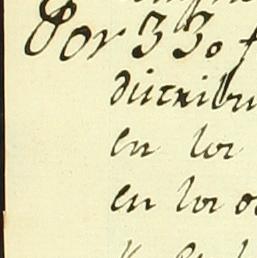 Por 330
distribu
en los
en los o